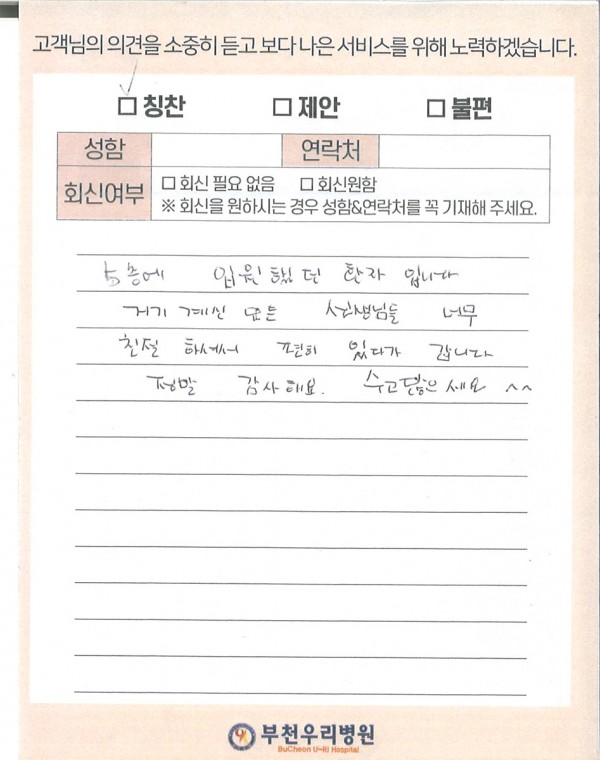 고객님의 의견을 소중히 듣고 보다 나은 서비스를 위해 노력하겠습니다.
☐ 칭찬 ☐ 제안 ☐ 불편
성함 연락처
회신여부 ☐ 회신 필요 없음 ☐ 회신원함
※ 회신을 원하시는 경우 성함&연락처를 꼭 기재해 주세요.
5층에 입원 했던 환자 입니다
거기 계신 모든 선생님들 너무
친절 하셔서 편히 있다가 갑니다
정말 감사해요. 수고 세요 ^^
부천우리병원
BuCheon U-Ri Hospital